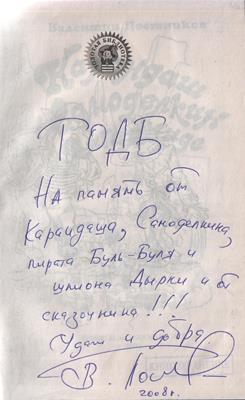 Валентин Постников
ЗОЛОТАЯ БИБЛИОТЕКА
Карандаш
Самоделкин
ГОДБ
На память от
Карандаша, Самоделкина,
пирата Буль-Буля и
шпиона Дырки и от
сказочника!!!
Удачи и добра
В. Пост
2008г.